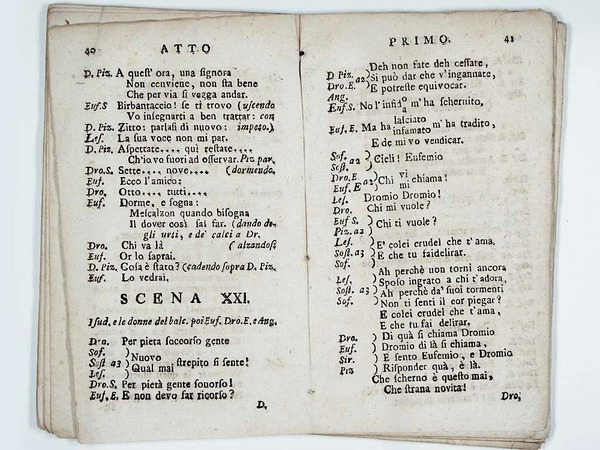 40 ATTO
D. Piz. A quest' ora, una signora
Non conviene, non sta bene
Che per via si vegga andar.
Euf.S Birbantaccio! se ti trovo (uscendo
Vo insegnarti a ben trattar: con
D. Piz. Zitto: parlasi di nuovo: impeto.)
Les. La sua voce non mi par.
D. Piz. Aspettate.... quì restate....
Ch'io vo fuori ad osservar. Piz par.
Dro.S. Sette.... nove.... (dormendo.
Euf. Ecco l'amico:
Dro. Otto.... tutti....
Euf. Dorme, e sogna:
Mescalzon quando bisogna
Il dover così sai far. (dando de-
gli urti, e de' calci a Dr.
Dro. Chi va là (alzandosi
Euf. Or lo saprai.
D. Piz. Cosa è stato? (cadendo sopra D. Piz.
Euf. Lo vedrai.
SCENA XXI.
I sud. e le donne del balc. poi Euf. Dro. E. e Ang.
Dro. Per pietà soccorso gente
Sof.
Sost a3 ) Nuovo
Qual mai strepito si sente!
Les.
Dro.S. Per pietà gente soccorso!
Euf. E. E non devo far ricorso?
D.
PRIMO. 41
Deh non fate deh cessate,
D Piz. a2 Si può dar che v'ingannate,
Dro. E. E potreste equivocar.
Ang.
Euf. S. No l'infido a m' ha schernito,
lasciato
Euf. E. Ma ha infamato m' ha tradito,
E de mi vo vendicar.
Sof. a2 ) Cieli! Eufemio
Sost.
Dro. E a2 Chi vi chiama!
Euf. E mi
Les. Dromio Dromio!
Dro. Chi mi vuole?
Euf S. ) Chi ti vuole?
Piz. a2
Les. E' colei crudel che t'ama,
Sost. a3 E che tu fai delirar.
Sof.
Ah perchè non torni ancora
Les. Sposo ingrato a chi t'adora,
Sost. a3 Ah perchè da' suoi tormenti
Sof. Non ti senti il cor piegar?
E colei crudel che t'ama,
E che tu fai delirar.
Dro. Di quà si chiama Dromio
Euf. Dromio di là si chiama,
Sir. E sento Eufemio, e Dromio
Piz Risponder quà, è là.
Che scherno è questo mai,
Che strana novità!
Dro,